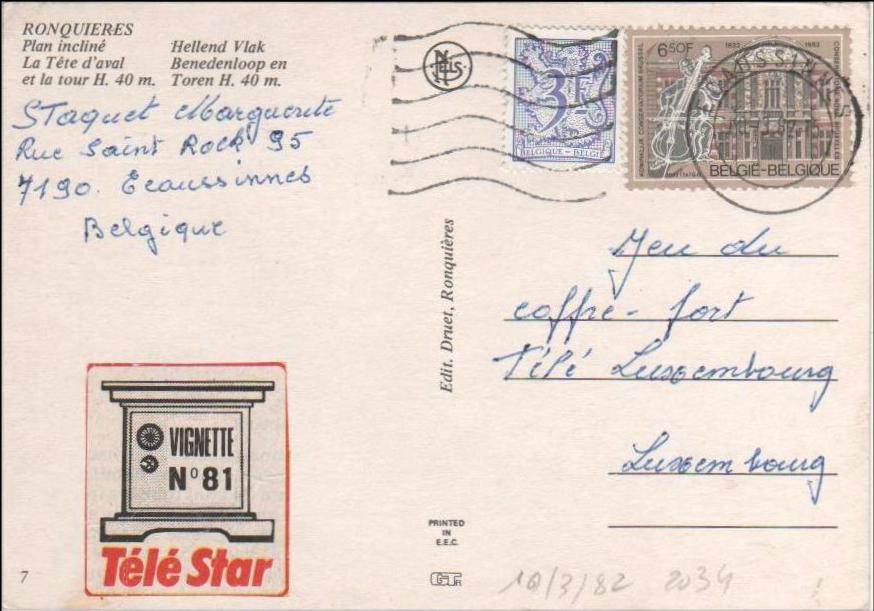 RONQUIERES
Plan incliné
La Tête d'aval
et la tour H. 40 m.
Hellend Vlak
Benedenloop en
Toren H. 40 m.
STaquet Marguerite
Rue Saint Roch 95
7190. Ecaussinnes
Belgique
NELS
3F
BELGIQUE - BELGIË
6,50F
1832 1982
BELGIË-BELGIQUE
Edit. Druet, Ronquières
Jeu du
coffre-fort
Télé Luxembourg
Luxembourg
VIGNETTE
N° 81
Télé Star
PRINTED
IN
E.E.C.
7
10/3/82 2034